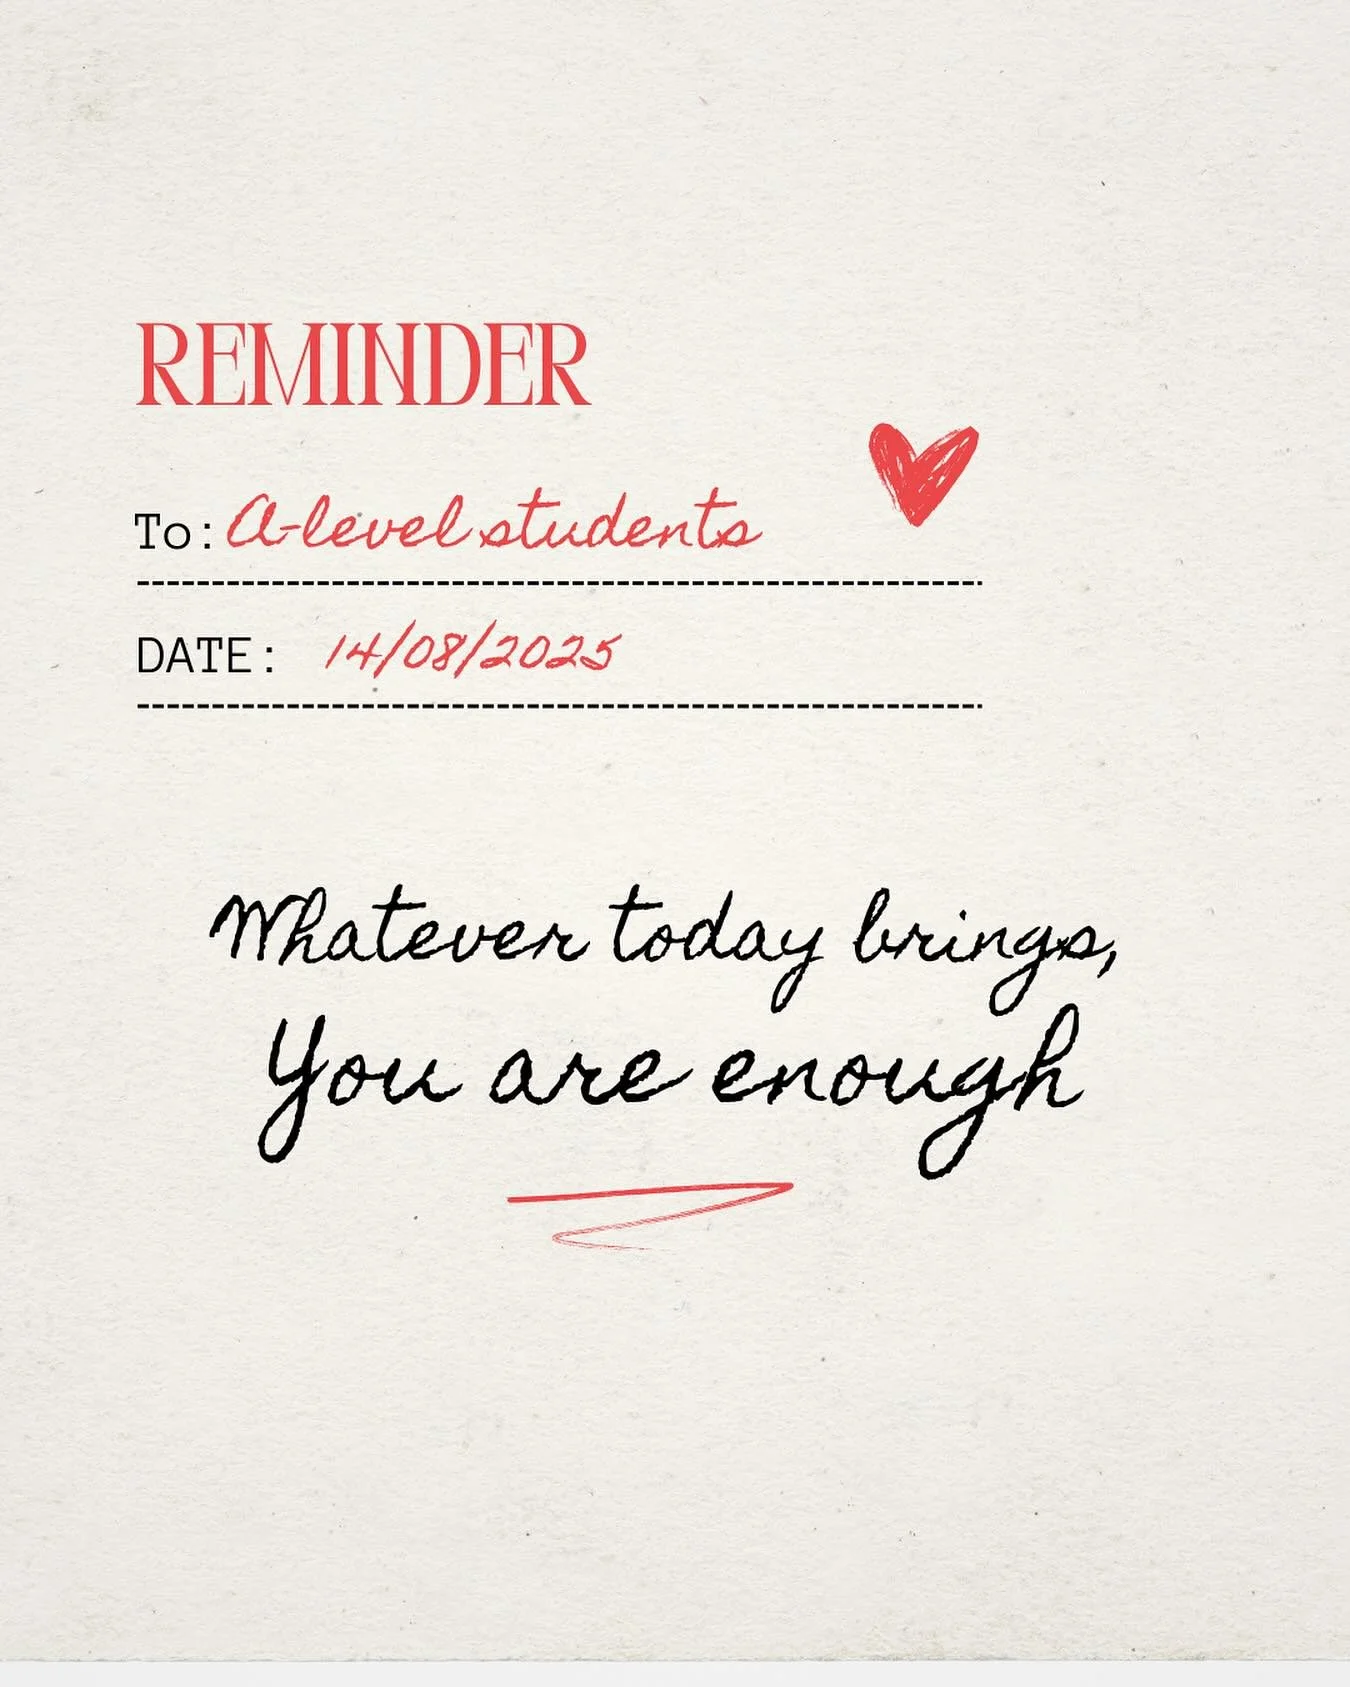 REMINDER
To: A-level students
DATE: 14/08/2025
Whatever today brings,
You are enough